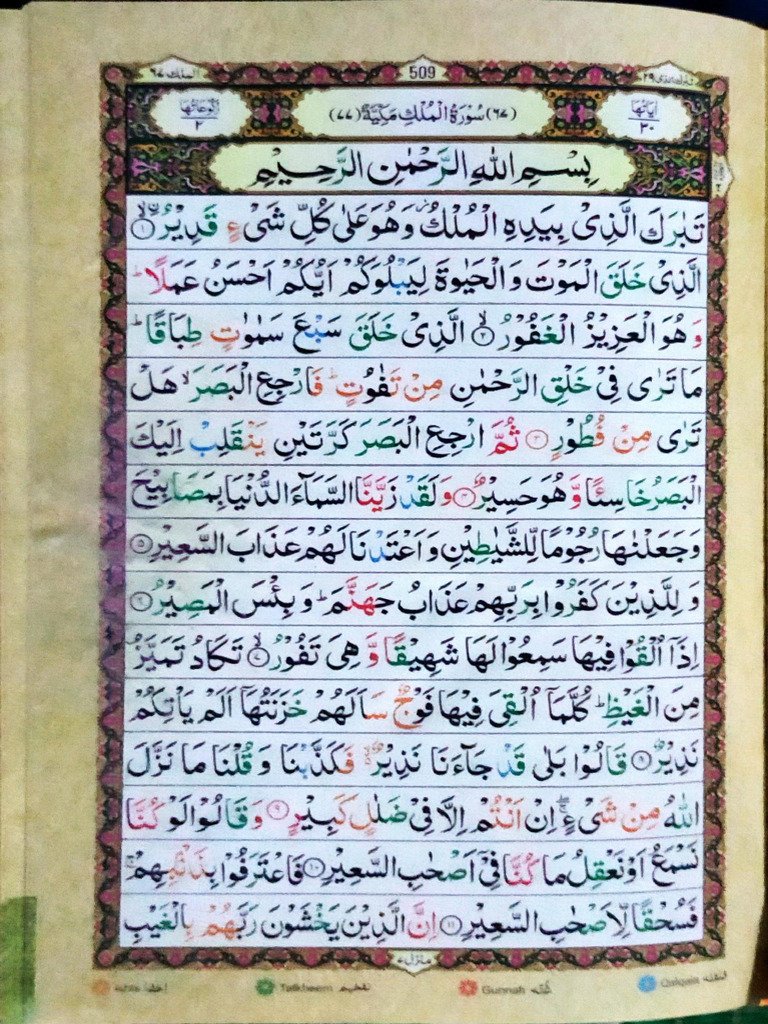 الملك ٦٧
509
تبٰرك الذی ٢٩
رکوعاتها ٢
(٦٧) سُوْرَةُ الْمُلْكِ مَكِّيَّةٌ (٧٧)
اٰيَاتُهَا ٣٠
بِسْمِ اللّٰهِ الرَّحْمٰنِ الرَّحِيْمِ
تَبٰرَكَ الَّذِىْ بِيَدِهِ الْمُلْكُ ز وَهُوَ عَلٰى كُلِّ شَىْءٍ قَدِيْرُ ۙ ۝١
الَّذِىْ خَلَقَ الْمَوْتَ وَالْحَيٰوةَ لِيَبْلُوَكُمْ اَيُّكُمْ اَحْسَنُ عَمَلًا ؕ
وَّهُوَ الْعَزِيْزُ الْغَفُوْرُ ۙ ۝٢ الَّذِىْ خَلَقَ سَبْعَ سَمٰوٰتٍ طِبَاقًا ؕ
مَا تَرٰى فِىْ خَلْقِ الرَّحْمٰنِ مِنْ تَفٰوُتٍ ؕ فَارْجِعِ الْبَصَرَ ۙ هَلْ
تَرٰى مِنْ فُطُوْرٍ ۝٣ ثُمَّ ارْجِعِ الْبَصَرَ كَرَّتَيْنِ يَنْقَلِبْ اِلَيْكَ
الْبَصَرُ خَاسِئًا وَّهُوَ حَسِيْرٌ ۝٤ وَلَقَدْ زَيَّنَّا السَّمَآءَ الدُّنْيَا بِمَصَابِيْحَ
وَجَعَلْنٰهَا رُجُوْمًا لِّلشَّيٰطِيْنِ وَاَعْتَدْنَا لَهُمْ عَذَابَ السَّعِيْرِ ۝٥
وَلِلَّذِيْنَ كَفَرُوْا بِرَبِّهِمْ عَذَابُ جَهَنَّمَ ؕ وَبِئْسَ الْمَصِيْرُ ۝٦
اِذَاۤ اُلْقُوْا فِيْهَا سَمِعُوْا لَهَا شَهِيْقًا وَّهِىَ تَفُوْرُ ۙ ۝٧ تَكَادُ تَمَيَّزُ
مِنَ الْغَيْظِ ؕ كُلَّمَاۤ اُلْقِىَ فِيْهَا فَوْجٌ سَاَلَهُمْ خَزَنَتُهَاۤ اَلَمْ يَاْتِكُمْ
نَذِيْرٌ ۝٨ قَالُوْا بَلٰى قَدْ جَآءَنَا نَذِيْرٌ ۙ فَكَذَّبْنَا وَقُلْنَا مَا نَزَّلَ
اللّٰهُ مِنْ شَىْءٍ ۖۚ اِنْ اَنْتُمْ اِلَّا فِىْ ضَلٰلٍ كَبِيْرٍ ۝٩ وَقَالُوْا لَوْ كُنَّا
نَسْمَعُ اَوْ نَعْقِلُ مَا كُنَّا فِىْۤ اَصْحٰبِ السَّعِيْرِ ۝١٠ فَاعْتَرَفُوْا بِذَنْۢبِهِمْ ۚ
فَسُحْقًا لِّاَصْحٰبِ السَّعِيْرِ ۝١١ اِنَّ الَّذِيْنَ يَخْشَوْنَ رَبَّهُمْ بِالْغَيْبِ
منزل ٧
Ikhfa اخفا Tafkheem تفخیم Gunnah غنّه Qalqala قلقله